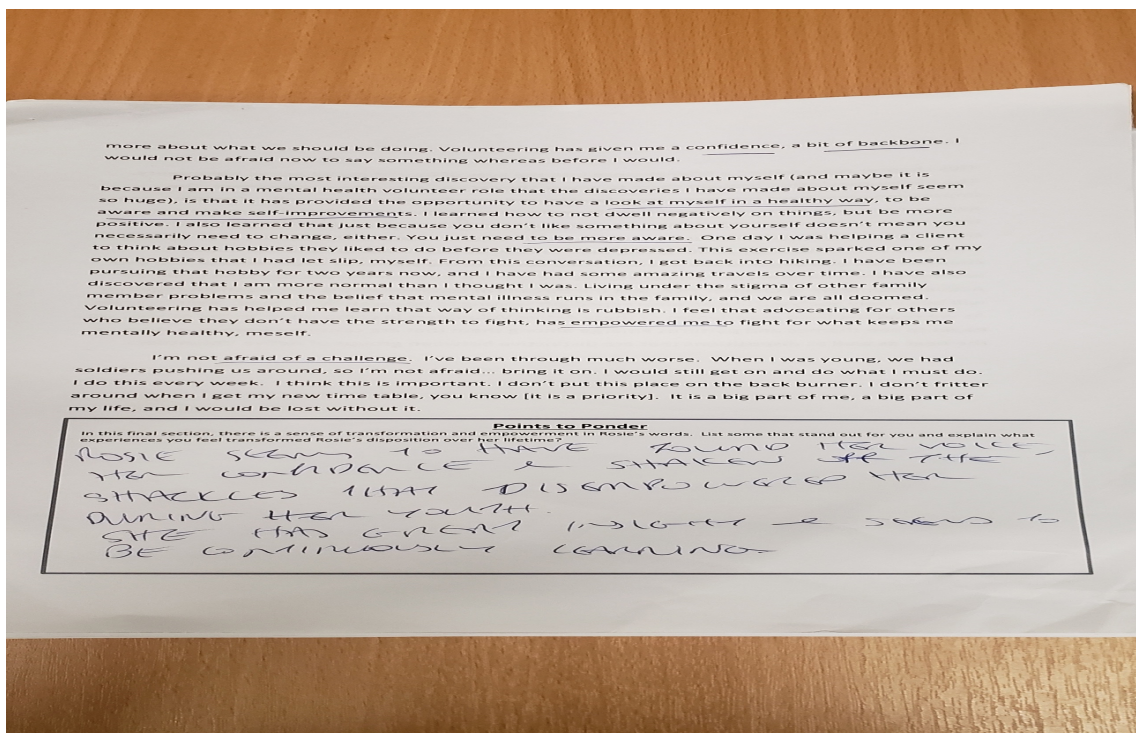 more about what we should be doing. Volunteering has given me a confidence, a bit of backbone. I
would not be afraid now to say something whereas before I would.
Probably the most interesting discovery that I have made about myself (and maybe it is
because I am in a mental health volunteer role that the discoveries I have made about myself seem
so huge), is that it has provided the opportunity to have a look at myself in a healthy way, to be
aware and make self-improvements. I learned how to not dwell negatively on things, but be more
positive. I also learned that just because you don't like something about yourself doesn't mean you
necessarily need to change, either. You just need to be more aware. One day I was helping a client
to think about hobbies they liked to do before they were depressed. This exercise sparked one of my
own hobbies that I had let slip, myself. From this conversation, I got back into hiking. I have been
pursuing that hobby for two years now, and I have had some amazing travels over time. I have also
discovered that I am more normal than I thought I was. Living under the stigma of other family
member problems and the belief that mental illness runs in the family, and we are all doomed.
Volunteering has helped me learn that way of thinking is rubbish. I feel that advocating for others
who believe they don't have the strength to fight, has empowered me to fight for what keeps me
mentally healthy, meself.
I'm not afraid of a challenge. I've been through much worse. When I was young, we had
soldiers pushing us around, so I'm not afraid... bring it on. I would still get on and do what I must do.
I do this every week. I think this is important. I don't put this place on the back burner. I don't fritter
around when I get my new time table, you know [it is a priority]. It is a big part of me, a big part of
my life, and I would be lost without it.
Points to Ponder
In this final section, there is a sense of transformation and empowerment in Rosie's words. List some that stand out for you and explain what
experiences you feel transformed Rosie's disposition over her lifetime?
ROSIE SEEMS TO HAVE FOUND HER VOICE,
HER CONFIDENCE & SHAKEN OFF THE
SHACKLES THAT DISEMPOWERED HER
DURING HER YOUTH.
SHE HAS GREAT INSIGHT & SEEMS TO
BE CONTINUOUSLY LEARNING